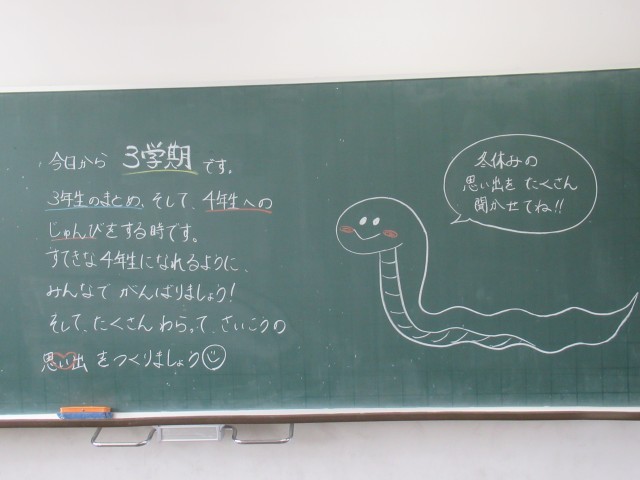 今日から 3学期 です。
3年生のまとめ、そして、4年生への
じゅんびをする時です。
すてきな4年生になれるように、
みんなで がんばりましょう！
そして、たくさん わらって、さいこうの
思い出 をつくりましょう
冬休みの
思い出を たくさん
聞かせてね!!